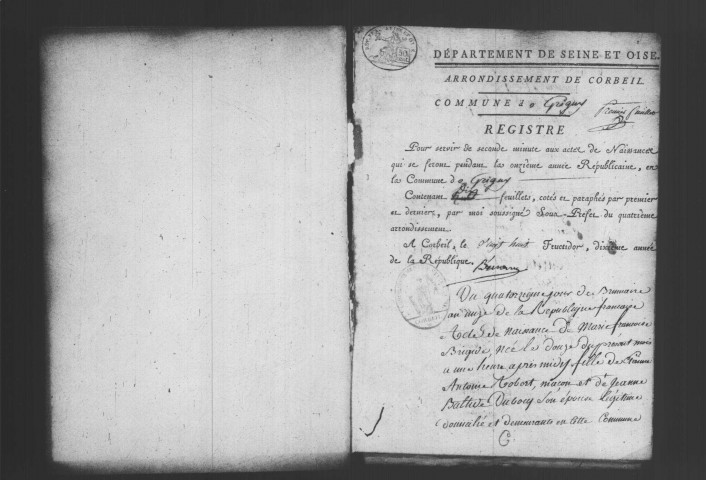 DÉPARTEMENT DE SEINE ET OISE.
ARRONDISSEMENT DE CORBEIL
COMMUNE d e Grigny
REGISTRE
Pour servir de seconde minute aux actes de Naissances
qui se feront pendant la onzième année Républicaine, en
la Commune de Grigny
Contenant feuillets, cotés et paraphés par premier
et dernier, par moi soussigné Sous-Préfet du quatrième
arrondissement.
A Corbeil, le Vingt huit Fructidor, dixième année
de la République.
Du quatorzième jour de Brumaire
an onze de la République française
Acte de naissance de Marie françoise
Brigide, née le douze du présent mois
a une heure après midy fille de
Antoine Robert, maçon et de Jeanne
Son épouse légitime
domicilié et demeurants en cette Commune